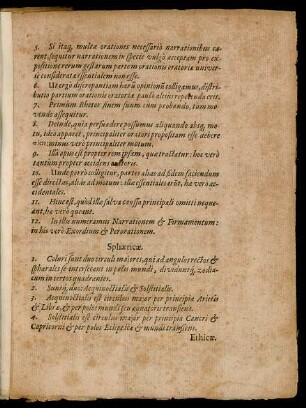 5. Si itaq, multæ orationes necessariò narrationibus ca-
rent, sequitur narrationem in specie vulgò acceptam pro ex-
positione rerum gestarum partem orationis oratoriæ univer-
sè consideratæ essentialem non esse.
6. Ut ergò discrepantiam harū opinionū colligamus, distri-
butio partium orationis oratoriæ paulò altius repetenda erit.
7. Primùm Rhetor finem suum cum probando, tum mo-
vendo assequitur.
8. Deinde, quia persuadere possumus aliquando absq, mo-
tu, ideo apparet, principaliter oratori propositum esse docere:
minus verò principaliter movere.
9. Illud opus est propter rem ipsam, quæ tractetur: hoc verò
tantum propter accidens
10. Unde porrò colligitur, partes alias ad fidem faciendum
esse directas, alias ad motum: illæ essentiales erūt, hæ verò ac-
cidentales.
11. Hinc est, quòd illæ salva causa principali omitti nequeant,
hæ verò queant.
12. In illis numeramus Narrationem & Firmamentum:
in his verò Exordium & Perorationem.
Sphæricæ.
1. Coluri sunt duo circuli majores, qui ad angulos rectos &
sphærales se intersecant in polis mundi, dividuntq, zodia-
cum in tertos quadrantes.
2. Suntq, duo: Æquinoctialis & Solstitialis.
3. Æquinoctialis est circulus major per principia Arietis
& Libræ, & per polos mundi seu æquatoris transiens.
4. Solstitialis est circulus major per principia Cancri &
Capricorni & per polos Eclipticæ & mundi transiens.
Ethicæ.